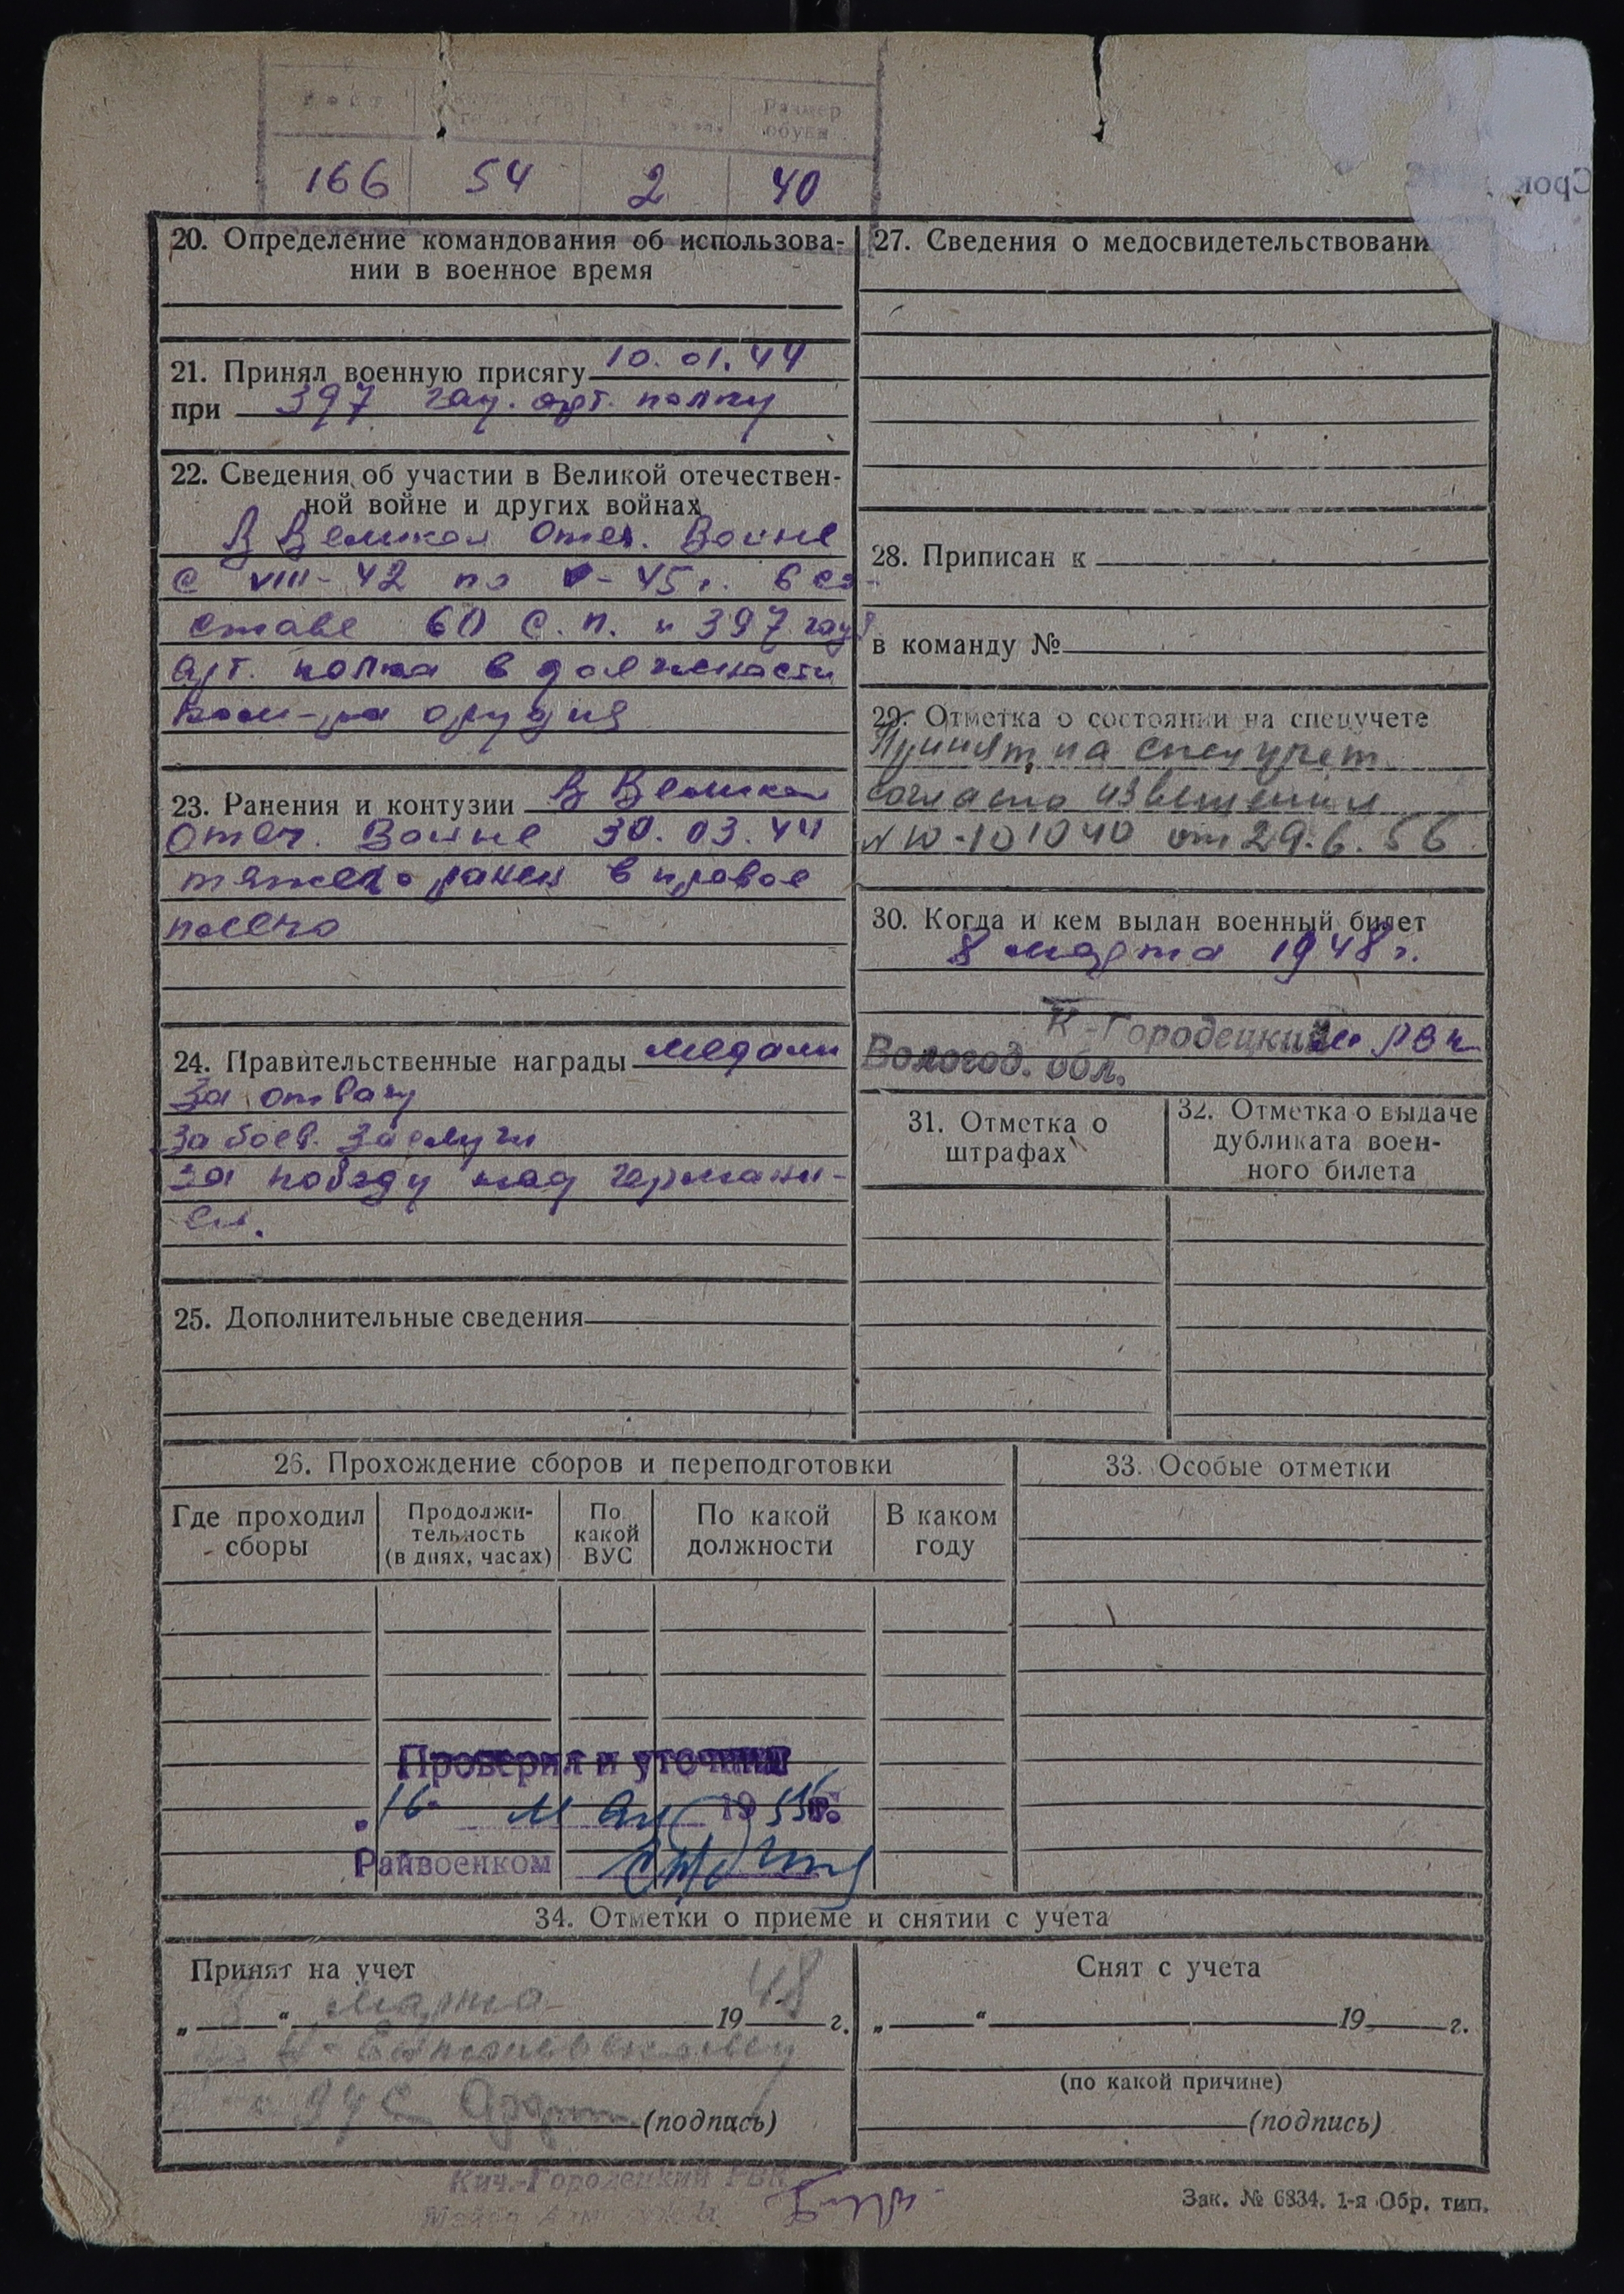 Рост
Размер
обуви
166 54 2 40
Срок
20. Определение командования об использова-
нии в военное время
21. Принял военную присягу 10.01.44
при 397 гау. арт. полку
22. Сведения об участии в Великой отечествен-
ной войне и других войнах
В Великой Отеч. Войне
с VIII-42 по V-45 г. в со-
ставе 60 с.п. и 397 гау
арт. полка в должности
ком-ра орудия
23. Ранения и контузии В Великой
Отеч. Войне 30.03.44
тяжело ранен в правое
плечо
24. Правительственные награды медали
За отвагу
За боев. заслуги
За победу над германи-
ей.
25. Дополнительные сведения
27. Сведения о медосвидетельствовани
28. Приписан к
в команду №
29. Отметка о состоянии на спецучете
Принят на спецучет
согласно извещения
№ Ю-101040 от 29.6.56
30. Когда и кем выдан военный билет
8 марта 1948 г.
К-Городецким РВК
Вологод. обл.
31. Отметка о
штрафах
32. Отметка о выдаче
дубликата воен-
ного билета
26. Прохождение сборов и переподготовки
Где проходил
сборы
Продолжи-
тельность
(в днях, часах)
По
какой
ВУС
По какой
должности
В каком
году
33. Особые отметки
Проверил и уточнил
„16" мая 1956 г.
Райвоенком
34. Отметки о приеме и снятии с учета
Принят на учет
„8" марта 1948 г.
(подпись)
Снят с учета
„ " 19 г.
(по какой причине)
(подпись)
Кич.-Городецкий РВК
Зак. № 6834. 1-я Обр. тип.